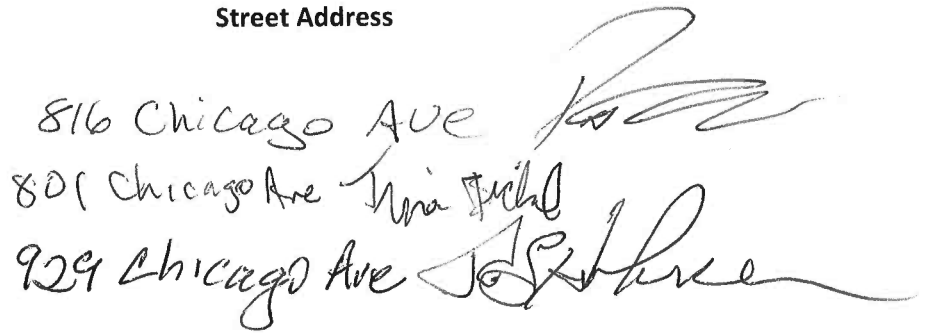 Street Address
816 Chicago Ave
801 Chicago Ave Tina
929 Chicago Ave